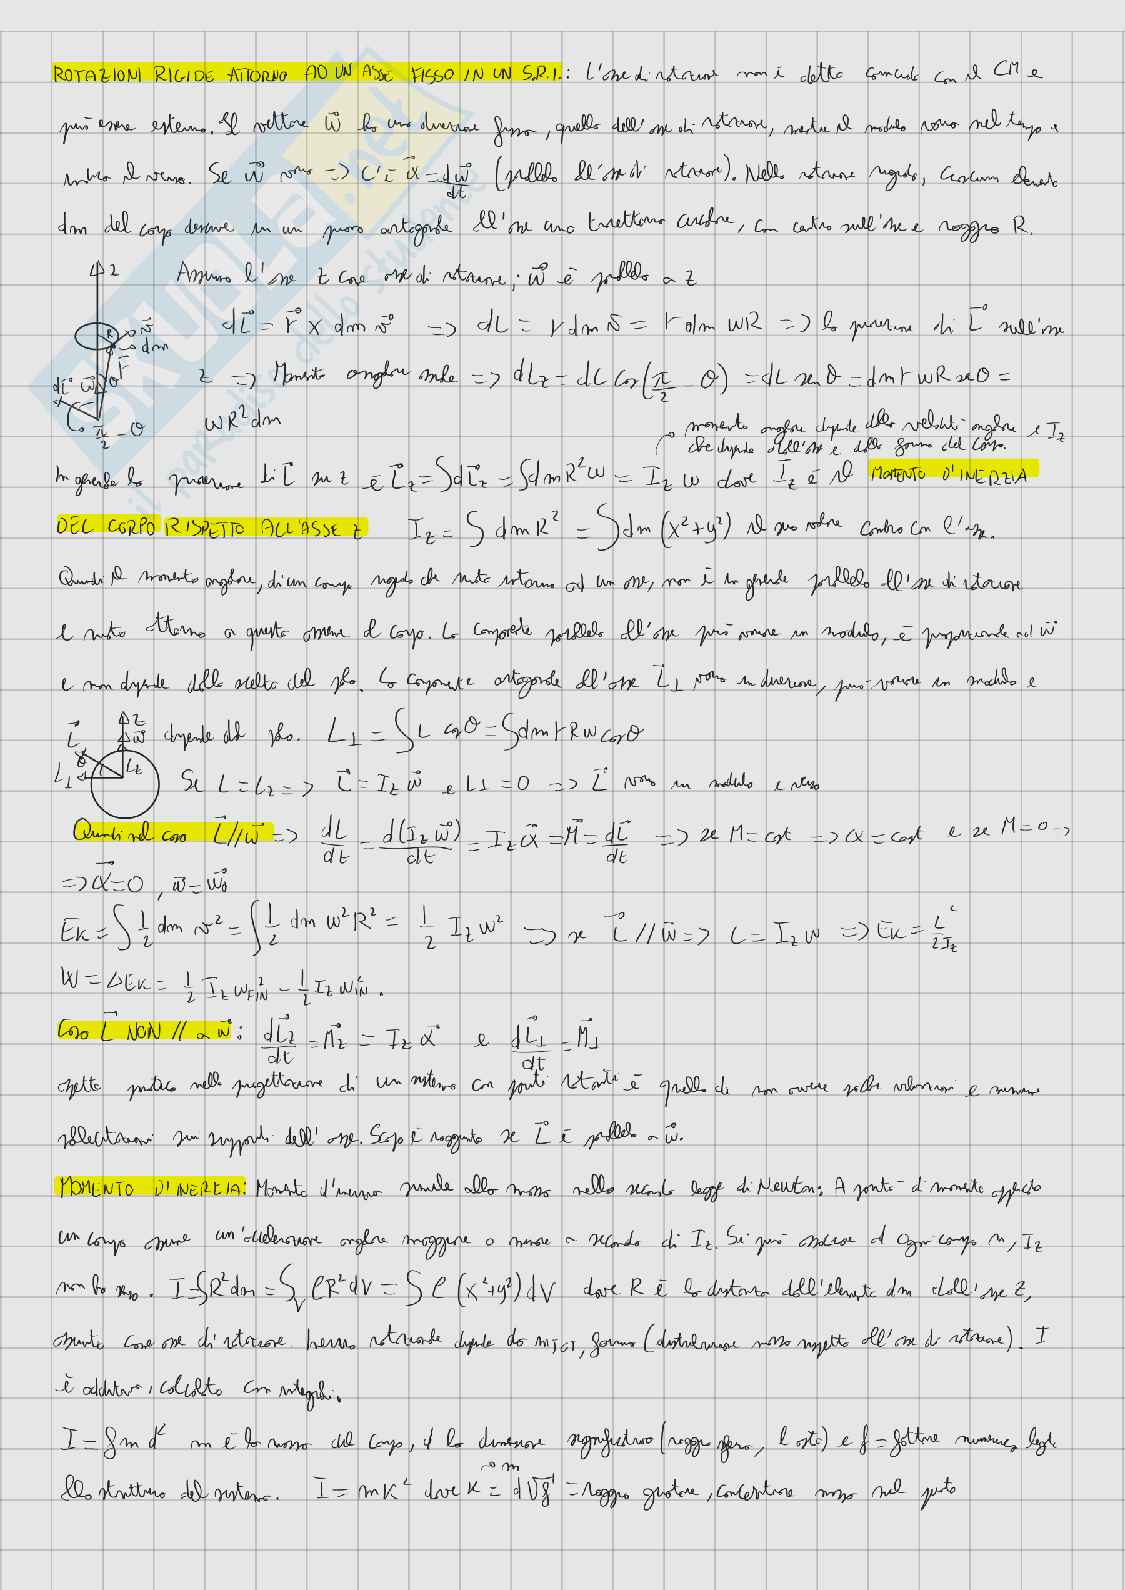 ROTAZIONI RIGIDE ATTORNO AD UN ASSE FISSO IN UN S.R.I.: L'asse di rotazione non è detto coincida con il CM e
può essere esterno. Il vettore w⃗ ha una direzione fissa, quella dell'asse di rotazione, mentre il modulo varia nel tempo e
il verso. Se w⃗ varia => C'è α⃗ = dw⃗/dt (parallela all'asse di rotazione). Nella rotazione rigida, ciascun elemento
dm del corpo descrive in un piano ortogonale all'asse una traiettoria circolare, con centro sull'asse e raggio R.
Assumo l'asse z come asse di rotazione; w⃗ è parallelo a z
dL⃗ = r⃗ x dm v⃗ => dL = r dm v = r dm wR => la proiezione di L⃗ sull'asse
z => Momento angolare assiale => dLz = dL cos(π/2 - θ) = dL senθ = dm r wR senθ =
wR² dm
momento angolare dipende dalla velocità angolare e Iz
che dipende dall'asse e dalla forma del corpo.
In generale la proiezione di L⃗ su z è L⃗z = ∫dL⃗z = ∫dm R² w = Iz w dove Iz è il MOMENTO D'INERZIA
DEL CORPO RISPETTO ALL'ASSE Z Iz = ∫ dm R² = ∫ dm (x²+y²) il suo valore cambia con l'asse.
Quindi il momento angolare, di un corpo rigido che ruota intorno ad un asse, non è in generale parallelo all'asse di rotazione
e ruota attorno a questo assieme al corpo. La componente parallela all'asse può variare in modulo, è proporzionale ad w⃗
e non dipende dalla scelta del polo. La componente ortogonale all'asse L⃗⊥ varia in direzione, può variare in modulo e
dipende dal polo. L⊥ = ∫L cosθ = ∫dm r R w cosθ
Se L = Lz => L⃗ = Iz w⃗ e L⊥ = 0 => L⃗ varia in modulo e verso
Quindi nel caso L⃗ // w⃗ => dL/dt = d(Iz w⃗)/dt = Iz α⃗ = M⃗ = dL⃗/dt => se M = cost => α = cost e se M = 0 =>
=> α⃗ = 0, w⃗ = w⃗0
EK = ∫ 1/2 dm v² = ∫ 1/2 dm w² R² = 1/2 Iz w² => se L⃗ // w⃗ => L = Iz w => EK = L²/2Iz
W = ΔEK = 1/2 Iz w²FIN - 1/2 Iz w²IN.
Caso L⃗ NON // a w⃗: dL⃗z/dt = M⃗z = Iz α⃗ e dL⃗⊥/dt = M⃗⊥
aspetto pratico nella progettazione di un sistema con parti rotanti è quello di non avere vibrazioni e
sollecitazioni sui supporti dell'asse. Scopo è raggiunto se L⃗ è parallelo a w⃗.
MOMENTO D'INERZIA: Momento d'inerzia simile alla massa nella seconda legge di Newton: A parità di momento applicato
un corpo assume un'accelerazione angolare maggiore o minore a seconda di Iz. Si può associare ad ogni corpo m, Iz
non ha senso. I = ∫R² dm = ∫v ρR² dV = ∫ ρ (x²+y²) dV dove R è la distanza dell'elemento dm dall'asse z,
assunto come asse di rotazione. Inerzia rotazionale dipende da mTOT, forma (distribuzione massa rispetto all'asse di rotazione). I
è additivo, calcolato con integrali.
I = f m d² m è la massa del corpo, d la dimensione significativa (raggio sfera, lato) e f = fattore numerico, legato
alla struttura del sistema. I = mK² dove K = d√f = raggio giratore, concentrare massa nel punto